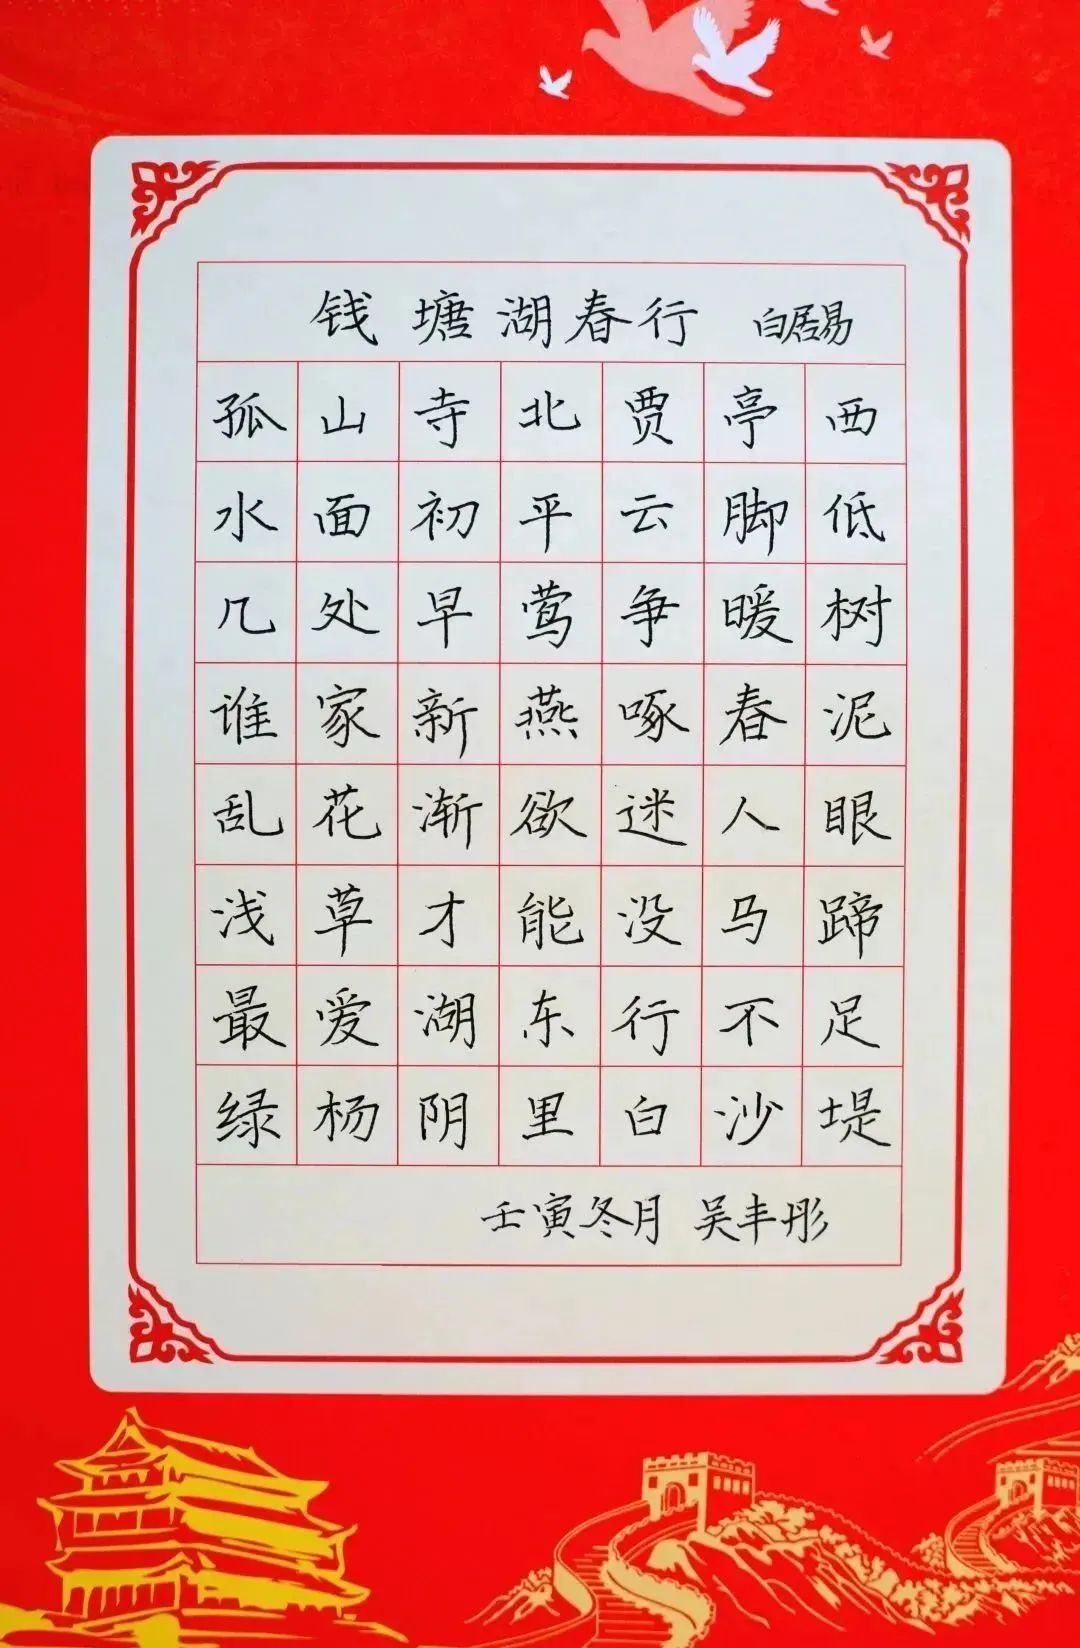 钱塘湖春行 白居易
孤山寺北贾亭西
水面初平云脚低
几处早莺争暖树
谁家新燕啄春泥
乱花渐欲迷人眼
浅草才能没马蹄
最爱湖东行不足
绿杨阴里白沙堤
壬寅冬月 吴丰彤